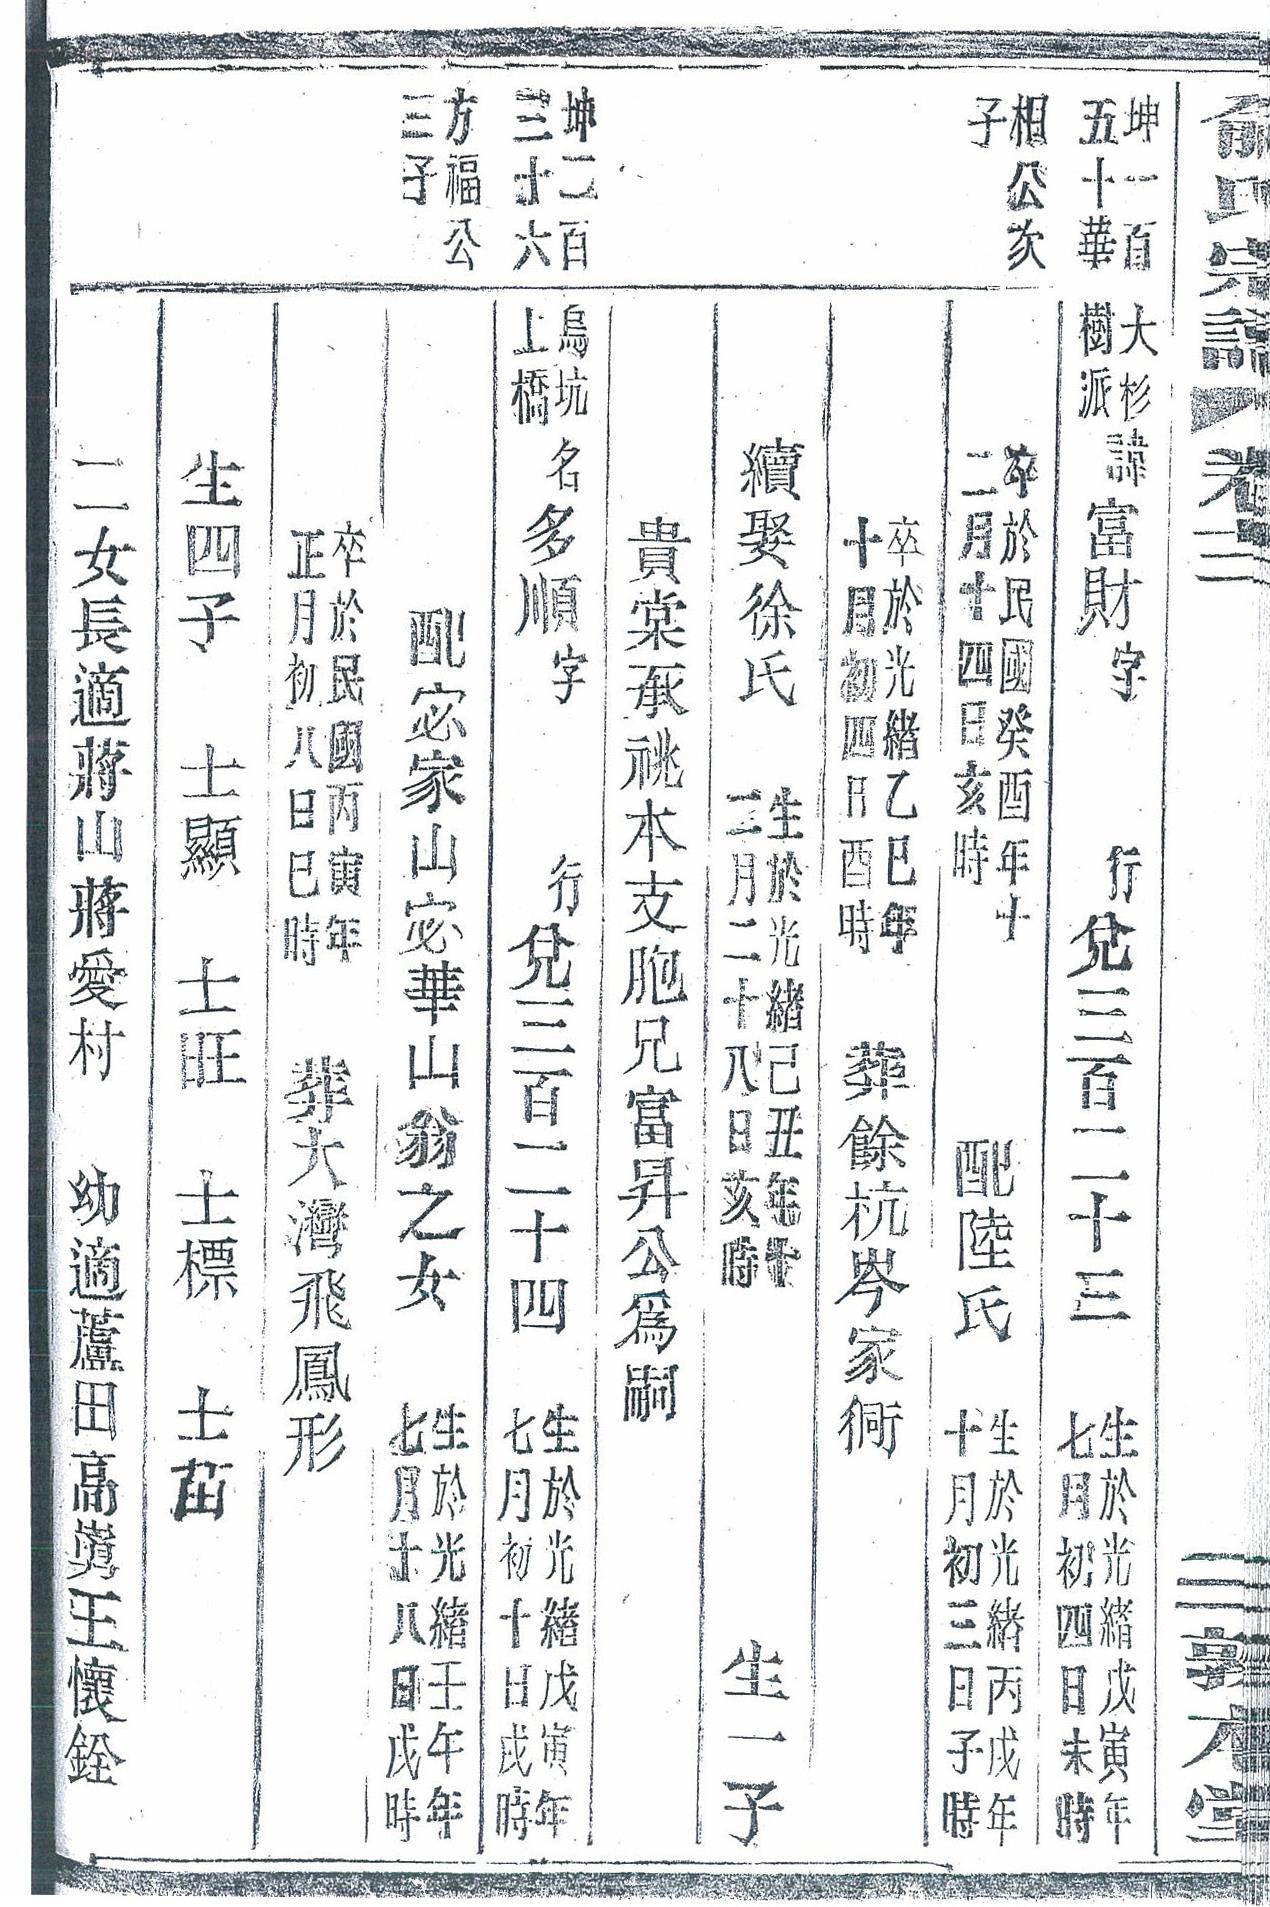 俞氏宗譜 卷二 三 敦本堂
坤一百五十華相公次子
大杉樹派 諱富財 字 行兌三百二十三 生於光緒戊寅年七月初四日未時
卒於民國癸酉年十二月十四日亥時 配陸氏 生於光緒丙戌年十月初三日子時
卒於光緒乙巳年十月初四日酉時 葬餘杭岑家衕
續娶徐氏 生於光緒己丑年十二月二十八日亥時 生一子
貴棠承祧本支胞兄富昇公爲嗣
坤二百三十六方福公三子
烏坑上橋 名多順 字 行兌三百二十四 生於光緒戊寅年七月初十日戌時
配宓家山宓華山翁之女 生於光緒壬午年七月十八日戌時
卒於民國丙寅年正月初八日巳時 葬大灣飛鳳形
生四子 士顯 士旺 士標 士苗
二女長適蔣山蔣愛村 幼適蘆田高㠘王懷銓